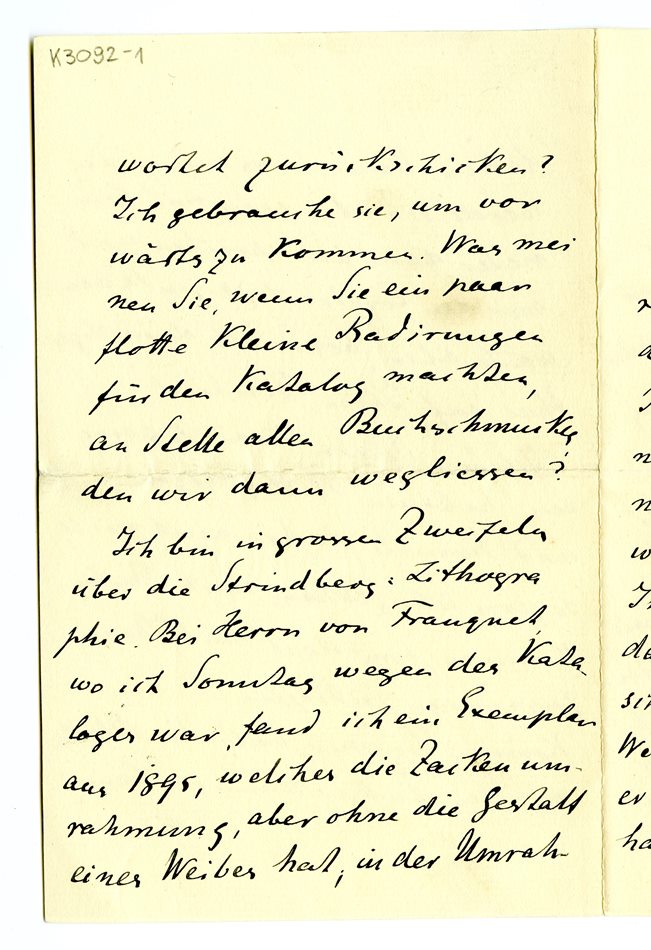 K3092-1
wortet zurückschicken?
Ich gebrauche sie, um vor
wärts zu kommen. Was mei
nen Sie, wenn Sie ein paar
flotte kleine Radirungen
für den Katalog machten,
an Stelle allen Buchschmuckes,
den wir dann wegliessen?
Ich bin in grossen Zweifeln
über die Strindberg-Lithogra
phie. Bei Herrn von Franquet,
wo ich Sonntag wegen des Kata-
loges war, fand ich ein Exemplar
aus 1895, welches die Zackenum-
rahmung, aber ohne die Gestalt
eines Weibes hat; in der Umrah-